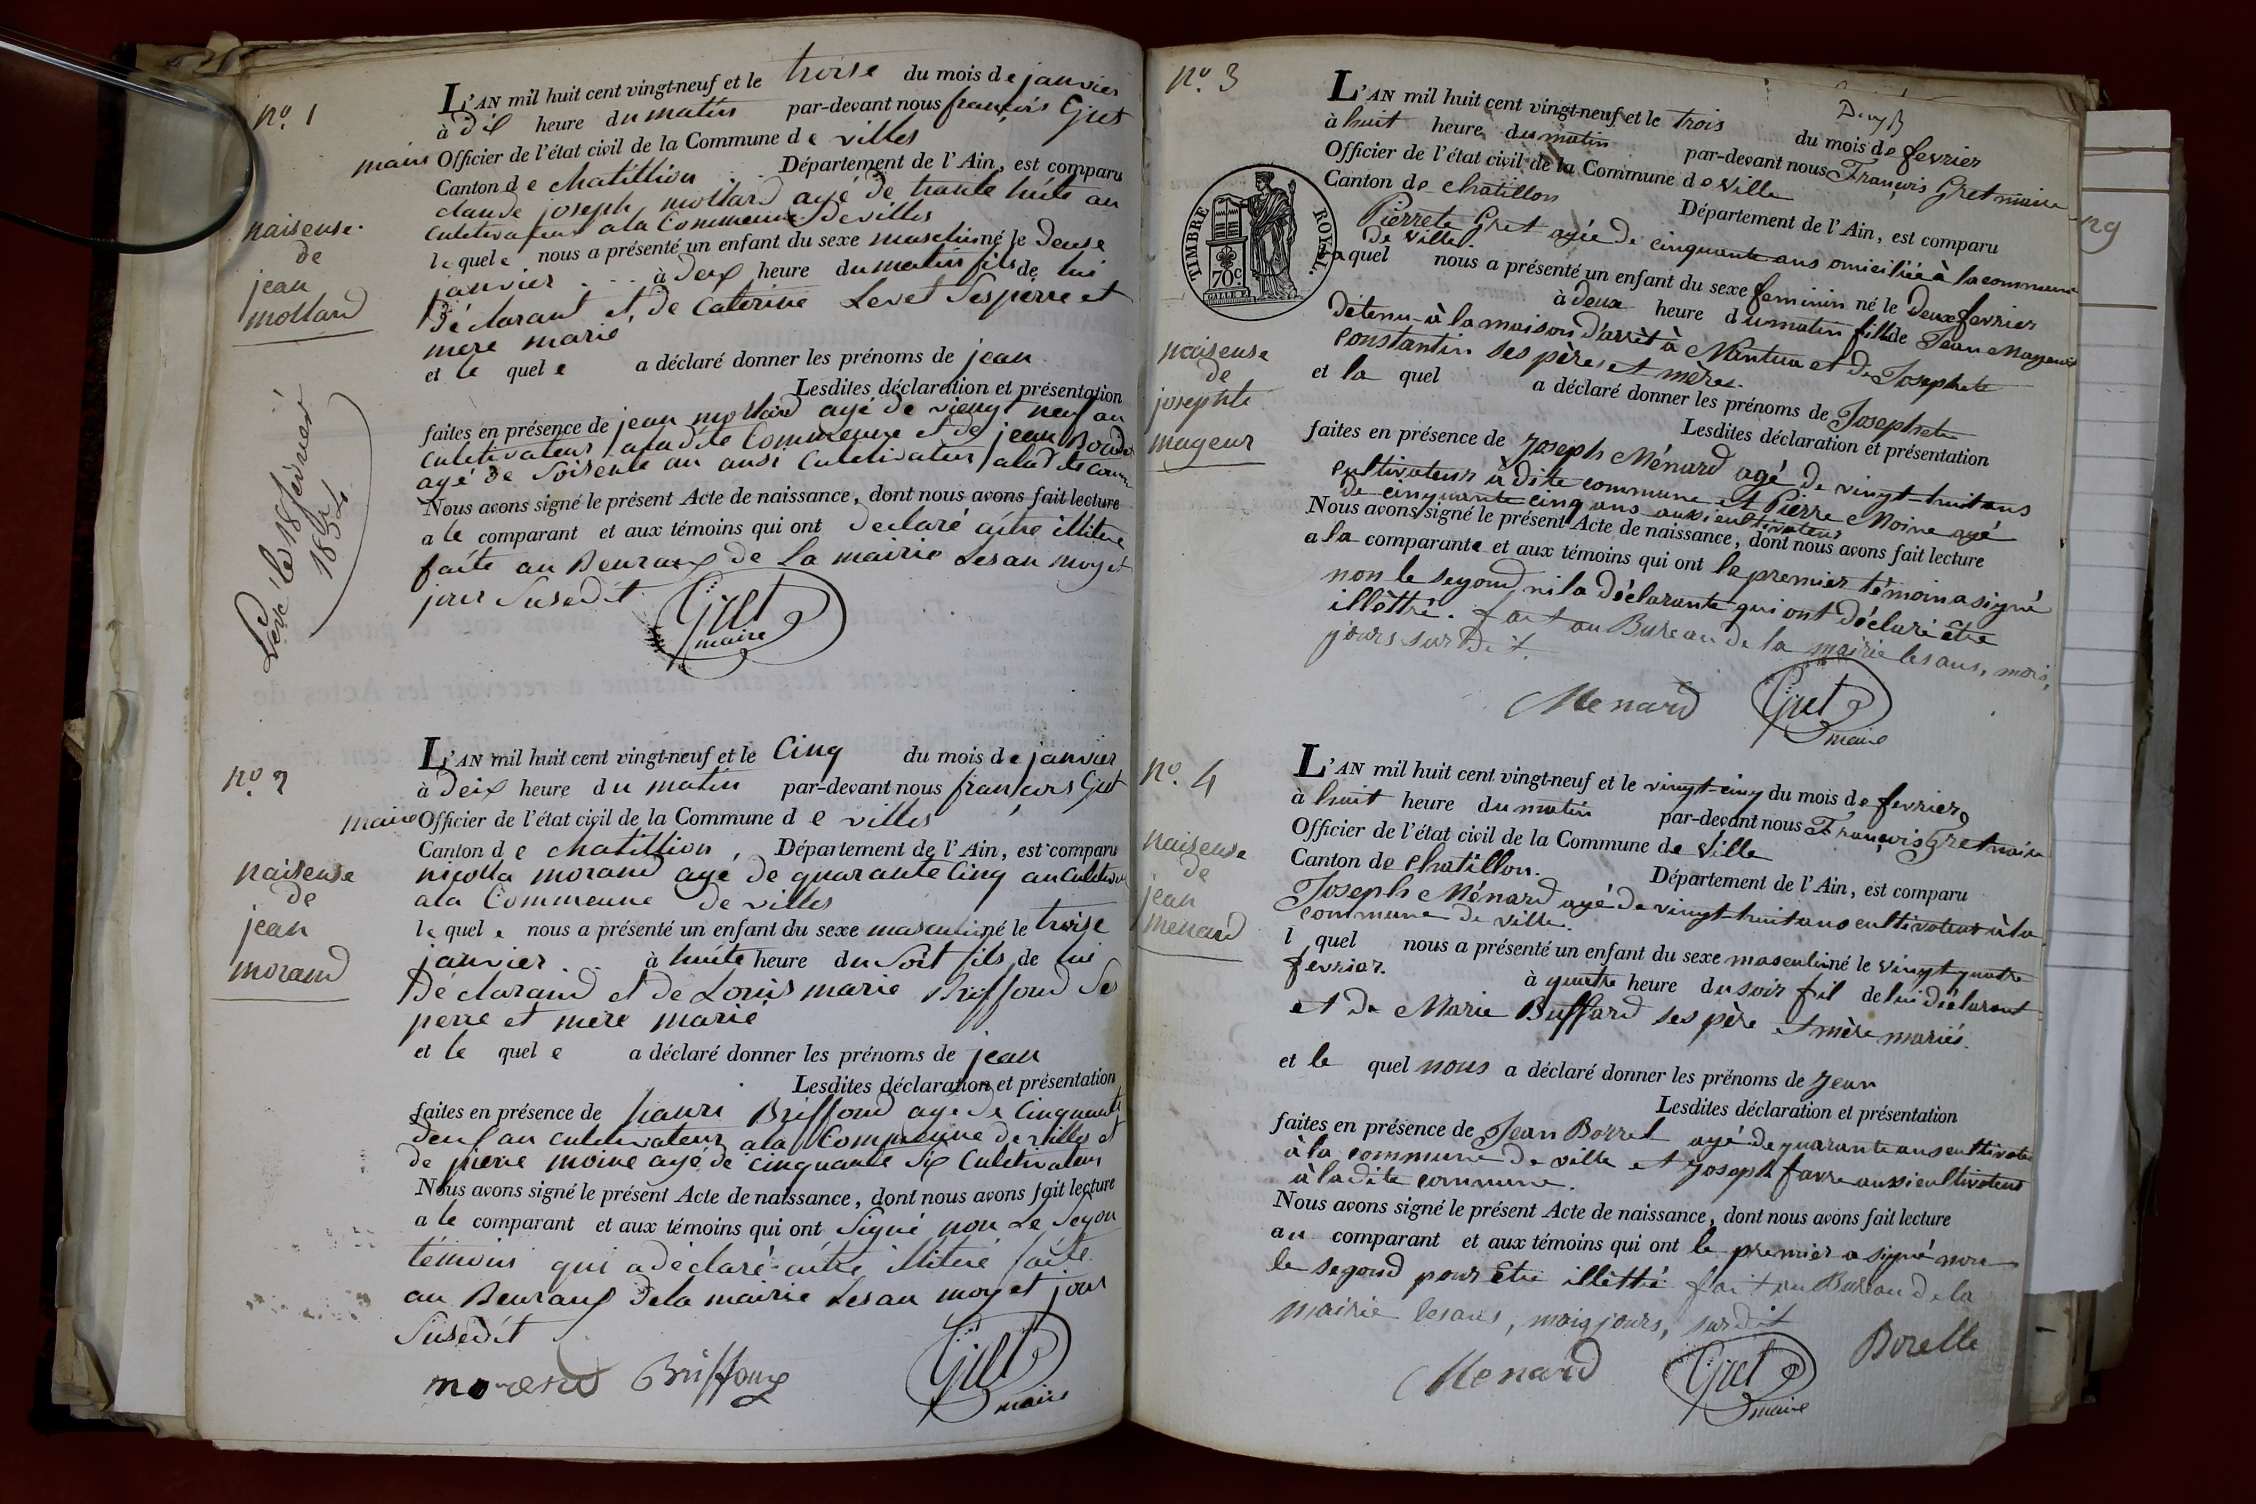 n.º 1
L'AN mil huit cent vingt-neuf et le troise du mois de janvier
à dix heure du matin par-devant nous françois Gret
maire Officier de l'état civil de la Commune de villes
Canton de chatillion Département de l'Ain, est comparu
claude joseph mollard agé de trante huite an
cultivateur a la Commeune de villes
le quele nous a présenté un enfant du sexe masculin né le deuse
janvier à deix heure du matin fils de lui
déclarant et de Caterine Levet Ses perre et
mere marié
et le quele a déclaré donner les prénoms de jean
Lesdites déclaration et présentation
faites en présence de jean mollard agé de vient neuf an
cultivateur a la dite Commeune et de jean
agé de Soisente an ausi Cultivateur a la dite
Nous avons signé le présent Acte de naissance, dont nous avons fait lecture
a le comparant et aux témoins qui ont declaré aitre illitere
faite au Beuraux de La mairie Les an moy et
jour Susedit
Gret
maire
naiseuse
de
jean
mollard
Levé le 18 février
n.º 2
L'AN mil huit cent vingt-neuf et le Cinq du mois de janvier
à deix heure du matin par-devant nous françois Gret
maire Officier de l'état civil de la Commune de villes
Canton de chatillion, Département de l'Ain, est comparu
nicolla morand agé de quarante Cinq an
a la Commeune de villes
le quele nous a présenté un enfant du sexe masculin né le troise
janvier à huite heure du Soit fils de lui
Déclarand et de Louis marie Briffoud Se
perre et mere marié
et le quele a déclaré donner les prénoms de jean
Lesdites déclaration et présentation
faites en présence de Briffoud agé de Cinquante
an cultivateur a la Commeune de villes et
de pierre moine agé de cinquante Six Cultivateur
Nous avons signé le présent Acte de naissance, dont nous avons fait lecture
a le comparant et aux témoins qui ont Signé non Le Segon
témoins qui a déclaré aitre illiteré faite
au Beuraux de la mairie Les an moy et jour
Susedit
Briffoux
Gret
maire
naiseuse
de
jean
morand
n.º 3
L'AN mil huit cent vingt-neuf et le trois du mois de fevrier
à huit heure du matin par-devant nous François Gret maire
Officier de l'état civil de la Commune de Ville
Canton de chatillon Département de l'Ain, est comparu
Pierrete Gret agée de cinquante ans omiciliée à la commune
de ville.
la quel nous a présenté un enfant du sexe feminin né le deux fevrier
à deux heure du matin fille de Jean
détenu à la maison d'arrèt à Nantua et de Josephete
constantin ses pères et mères.
et la quel a déclaré donner les prénoms de Josephete
Lesdites déclaration et présentation
faites en présence de Joseph Ménard agé de vingt-huit ans
cultivateur à dite commune et Pierre Moine agé
de cinquante cinq ans aussi cultivateur
Nous avons signé le présent Acte de naissance, dont nous avons fait lecture
a la comparante et aux témoins qui ont le premier témoin a signé
non le segond ni la déclarante qui ont déclaré être
illèttré. fait au Bureau de la mairie les ans, mois,
jours sur dit.
Menard
Gret
maire
TIMBRE ROYAL
70 c
naiseuse
de
josephte
mageur
n.º 4
L'AN mil huit cent vingt-neuf et le vingt-cinq du mois de fevrier
à huit heure du matin par-devant nous François Gret maire
Officier de l'état civil de la Commune de Ville
Canton de Chatillon. Département de l'Ain, est comparu
Joseph Ménard agé de vingt-huit ans cultivateur à la
commune de ville.
l quel nous a présenté un enfant du sexe masculin né le vingt quatre
fevrier. à quatre heure du soir fil de lui déclarent
et de Marie Buffard ses père et mère mariés.
et le quel nous a déclaré donner les prénoms de Jean
Lesdites déclaration et présentation
faites en présence de Jean Borrel agé de quarante ans
à la commune de ville et Joseph favre aussi cultivateur
à la dite commune.
Nous avons signé le présent Acte de naissance, dont nous avons fait lecture
au comparant et aux témoins qui ont le premier a signé non
le segond pour être illèttré fait au Bureau de la
mairie les ans, mois jours, sur dit
Menard
Gret
maire
Borelle
naiseuse
de
jean
menard